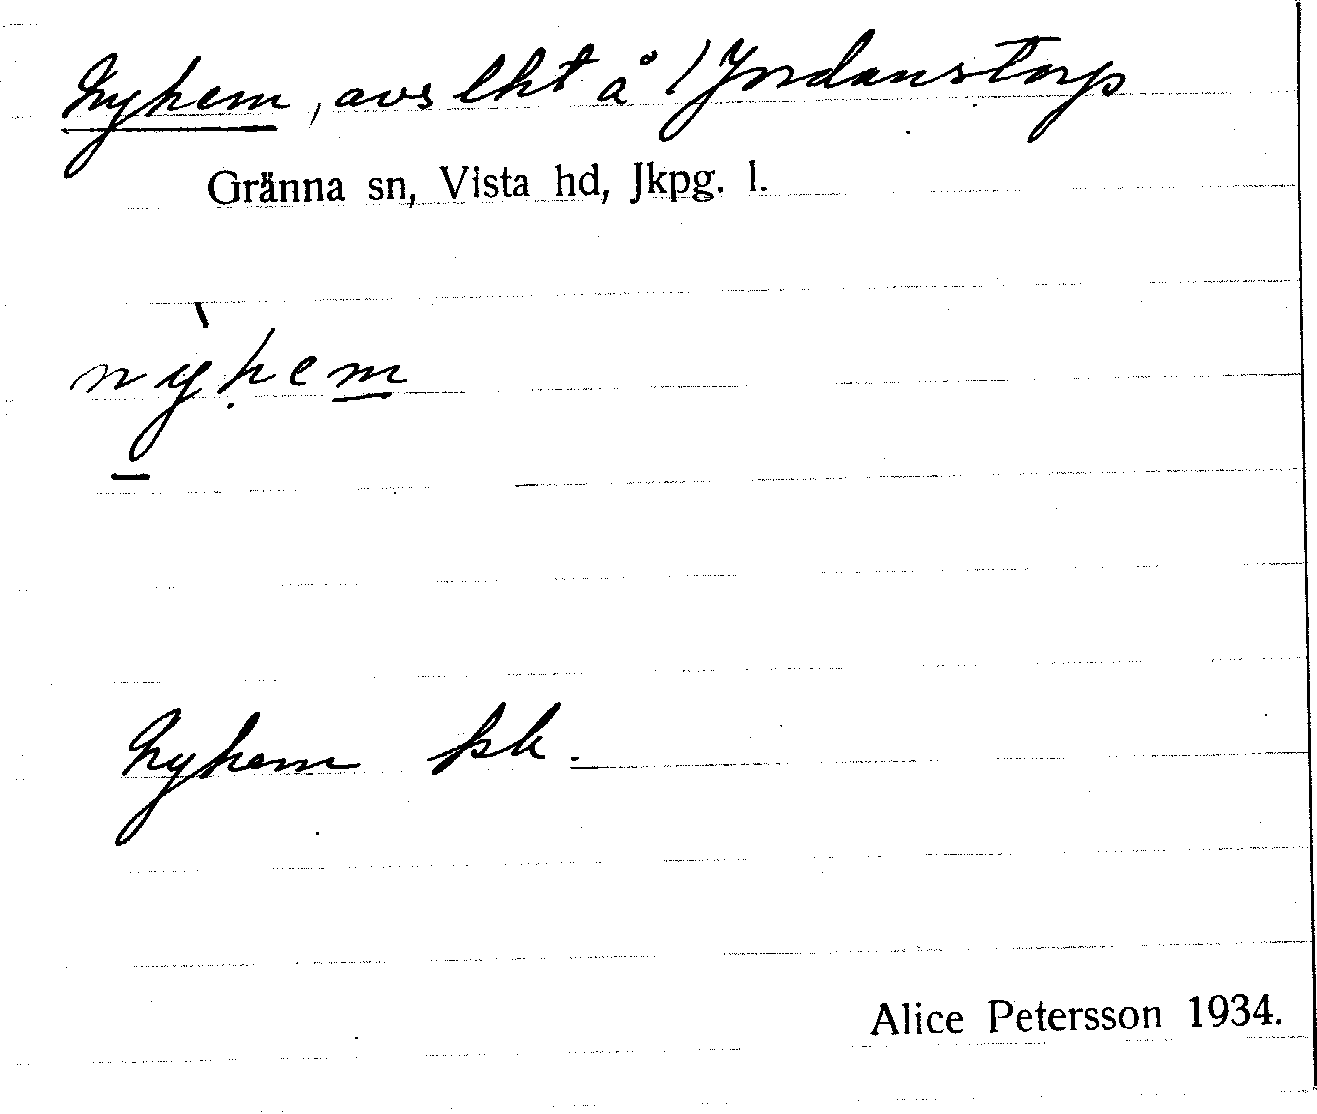 Nyhem, avs lht å 1 Jordanstorp
Gränna sn, Vista hd, Jkpg. l.
nỳhem
Nyhem pk.
Alice Petersson 1934.